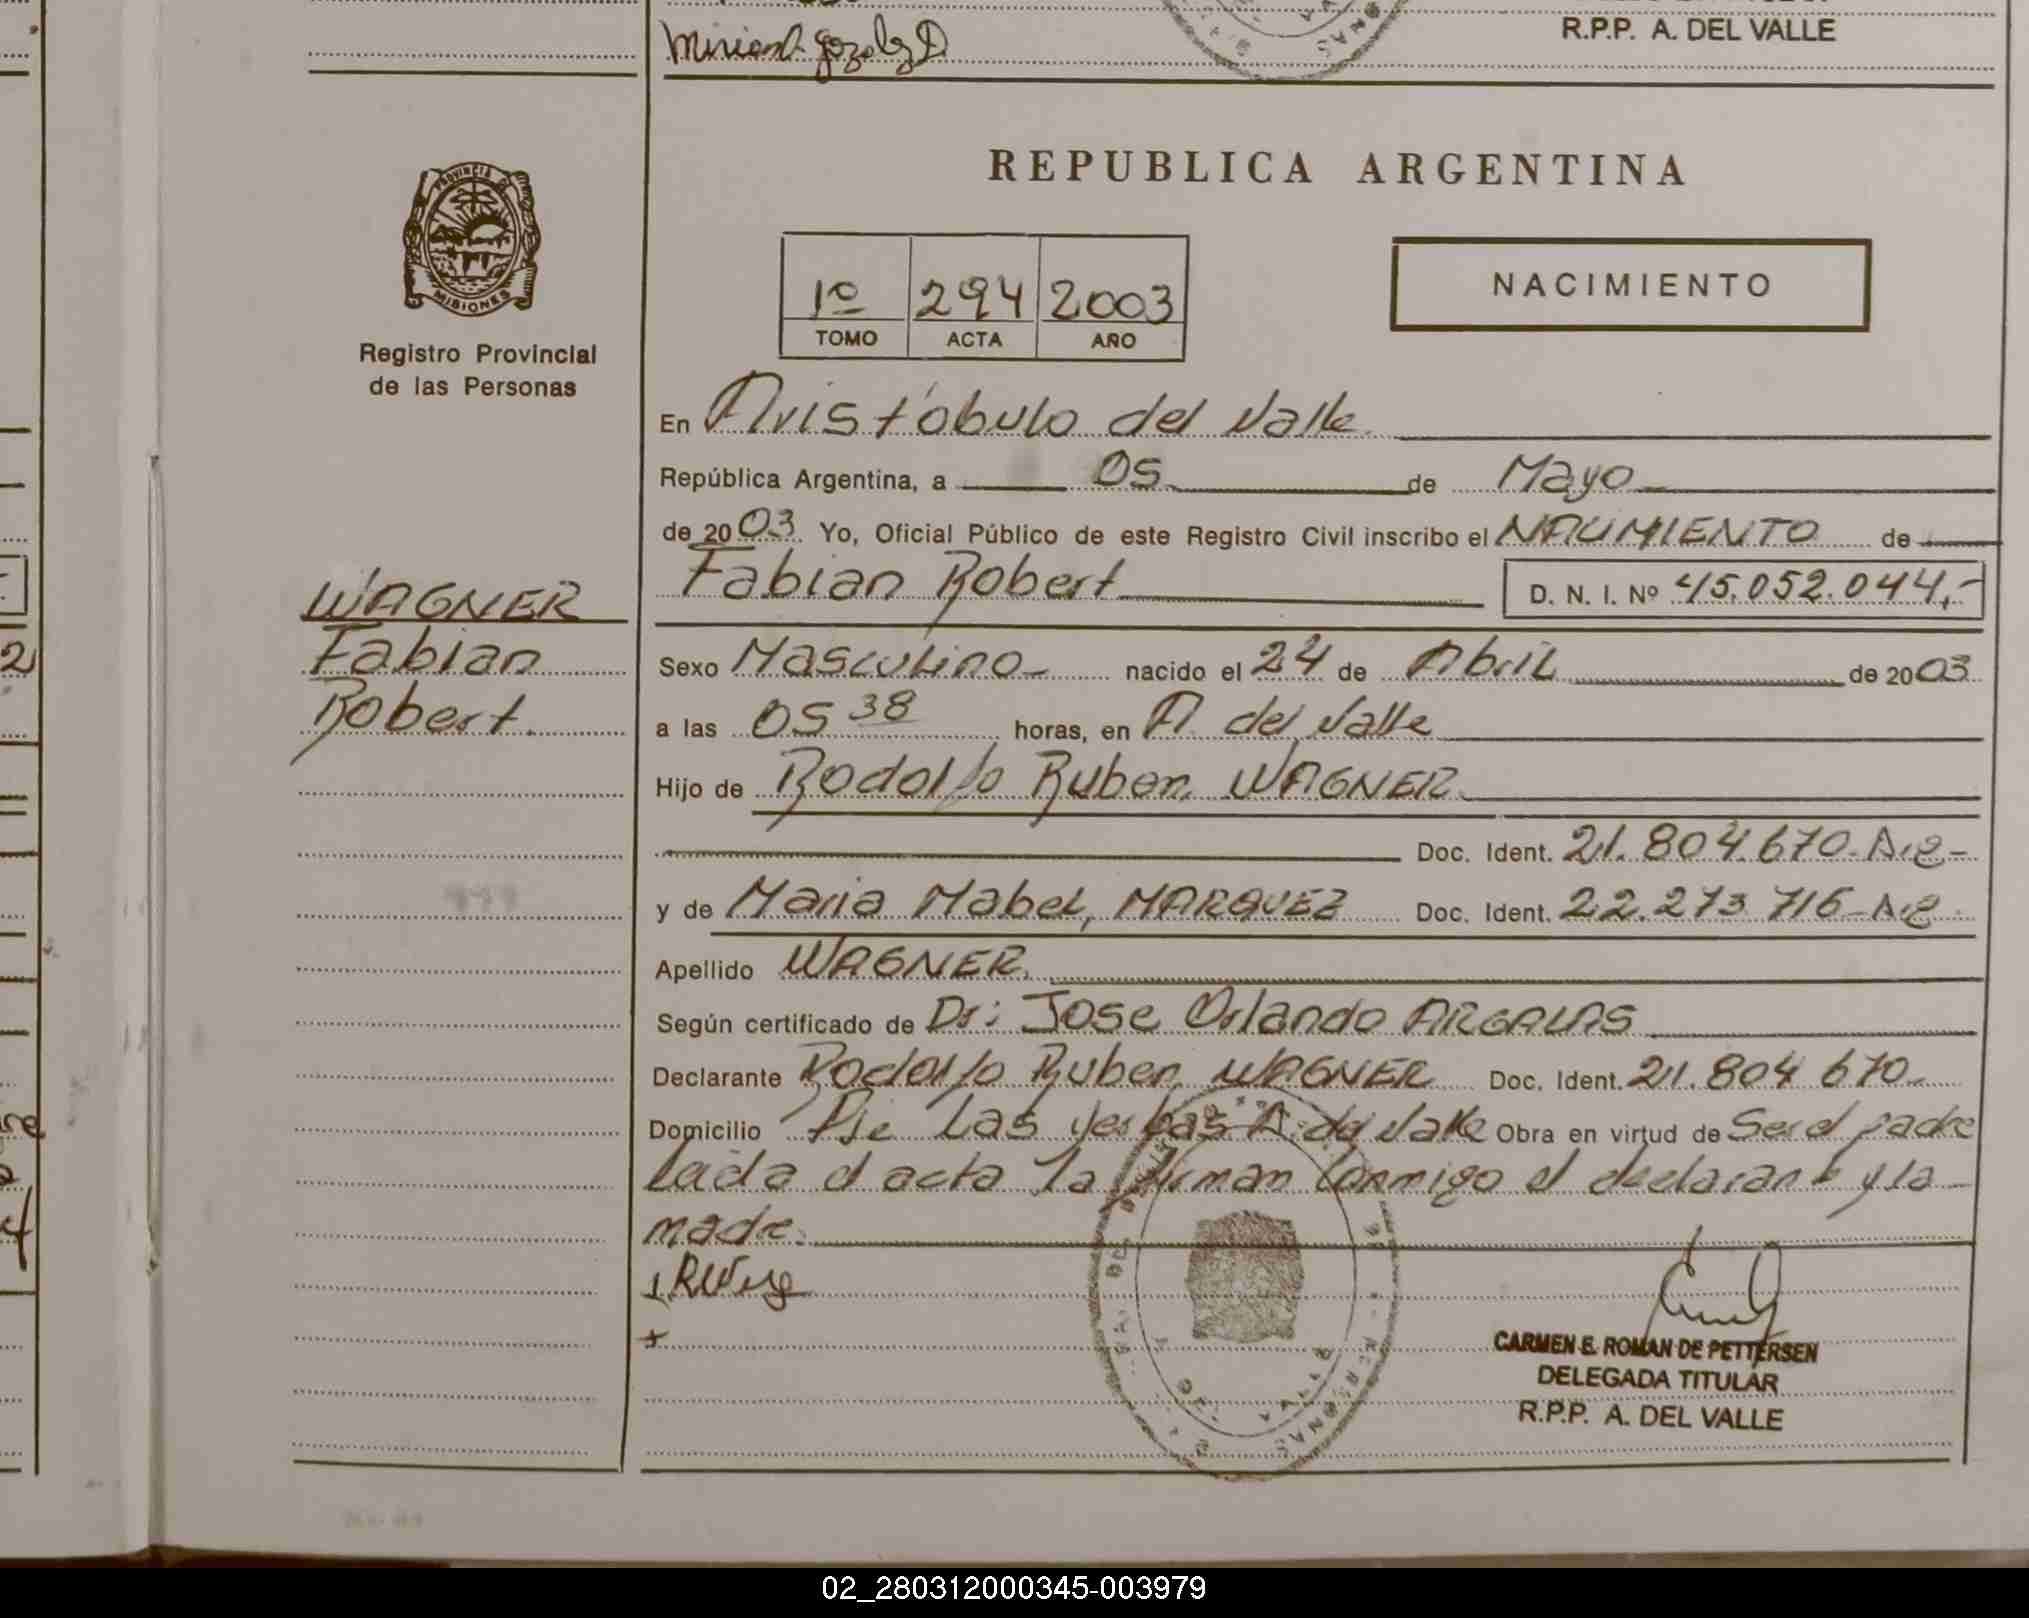 Miriam
R.P.P. A. DEL VALLE
REPUBLICA ARGENTINA
PROVINCIA DE
MISIONES
Registro Provincial
de las Personas
1º 294 2003
TOMO ACTA AÑO
NACIMIENTO
En Aristóbulo del Valle
República Argentina, a 05 de Mayo
de 2003 Yo, Oficial Público de este Registro Civil inscribo el NACIMIENTO de
Fabian Robert D. N. I. Nº 45.052.044,-
WAGNER
Fabian
Robert.
Sexo Masculino nacido el 24 de Abril de 2003
a las 05 38 horas, en A. del Valle
Hijo de Rodolfo Ruben, WAGNER
Doc. Ident. 21.804.670
y de Maria Mabel, MARQUEZ Doc. Ident. 22.273.716
Apellido WAGNER
Según certificado de Dr: Jose Orlando
Declarante Rodolfo Ruben, WAGNER Doc. Ident. 21.804 670
Domicilio Pje Las yerbas A. del Valle Obra en virtud de Ser el padre
Leida el acta la firman conmigo el declarante y la
madre.
CARMEN E. ROMAN DE PETTERSEN
DELEGADA TITULAR
R.P.P. A. DEL VALLE
02_280312000345-003979